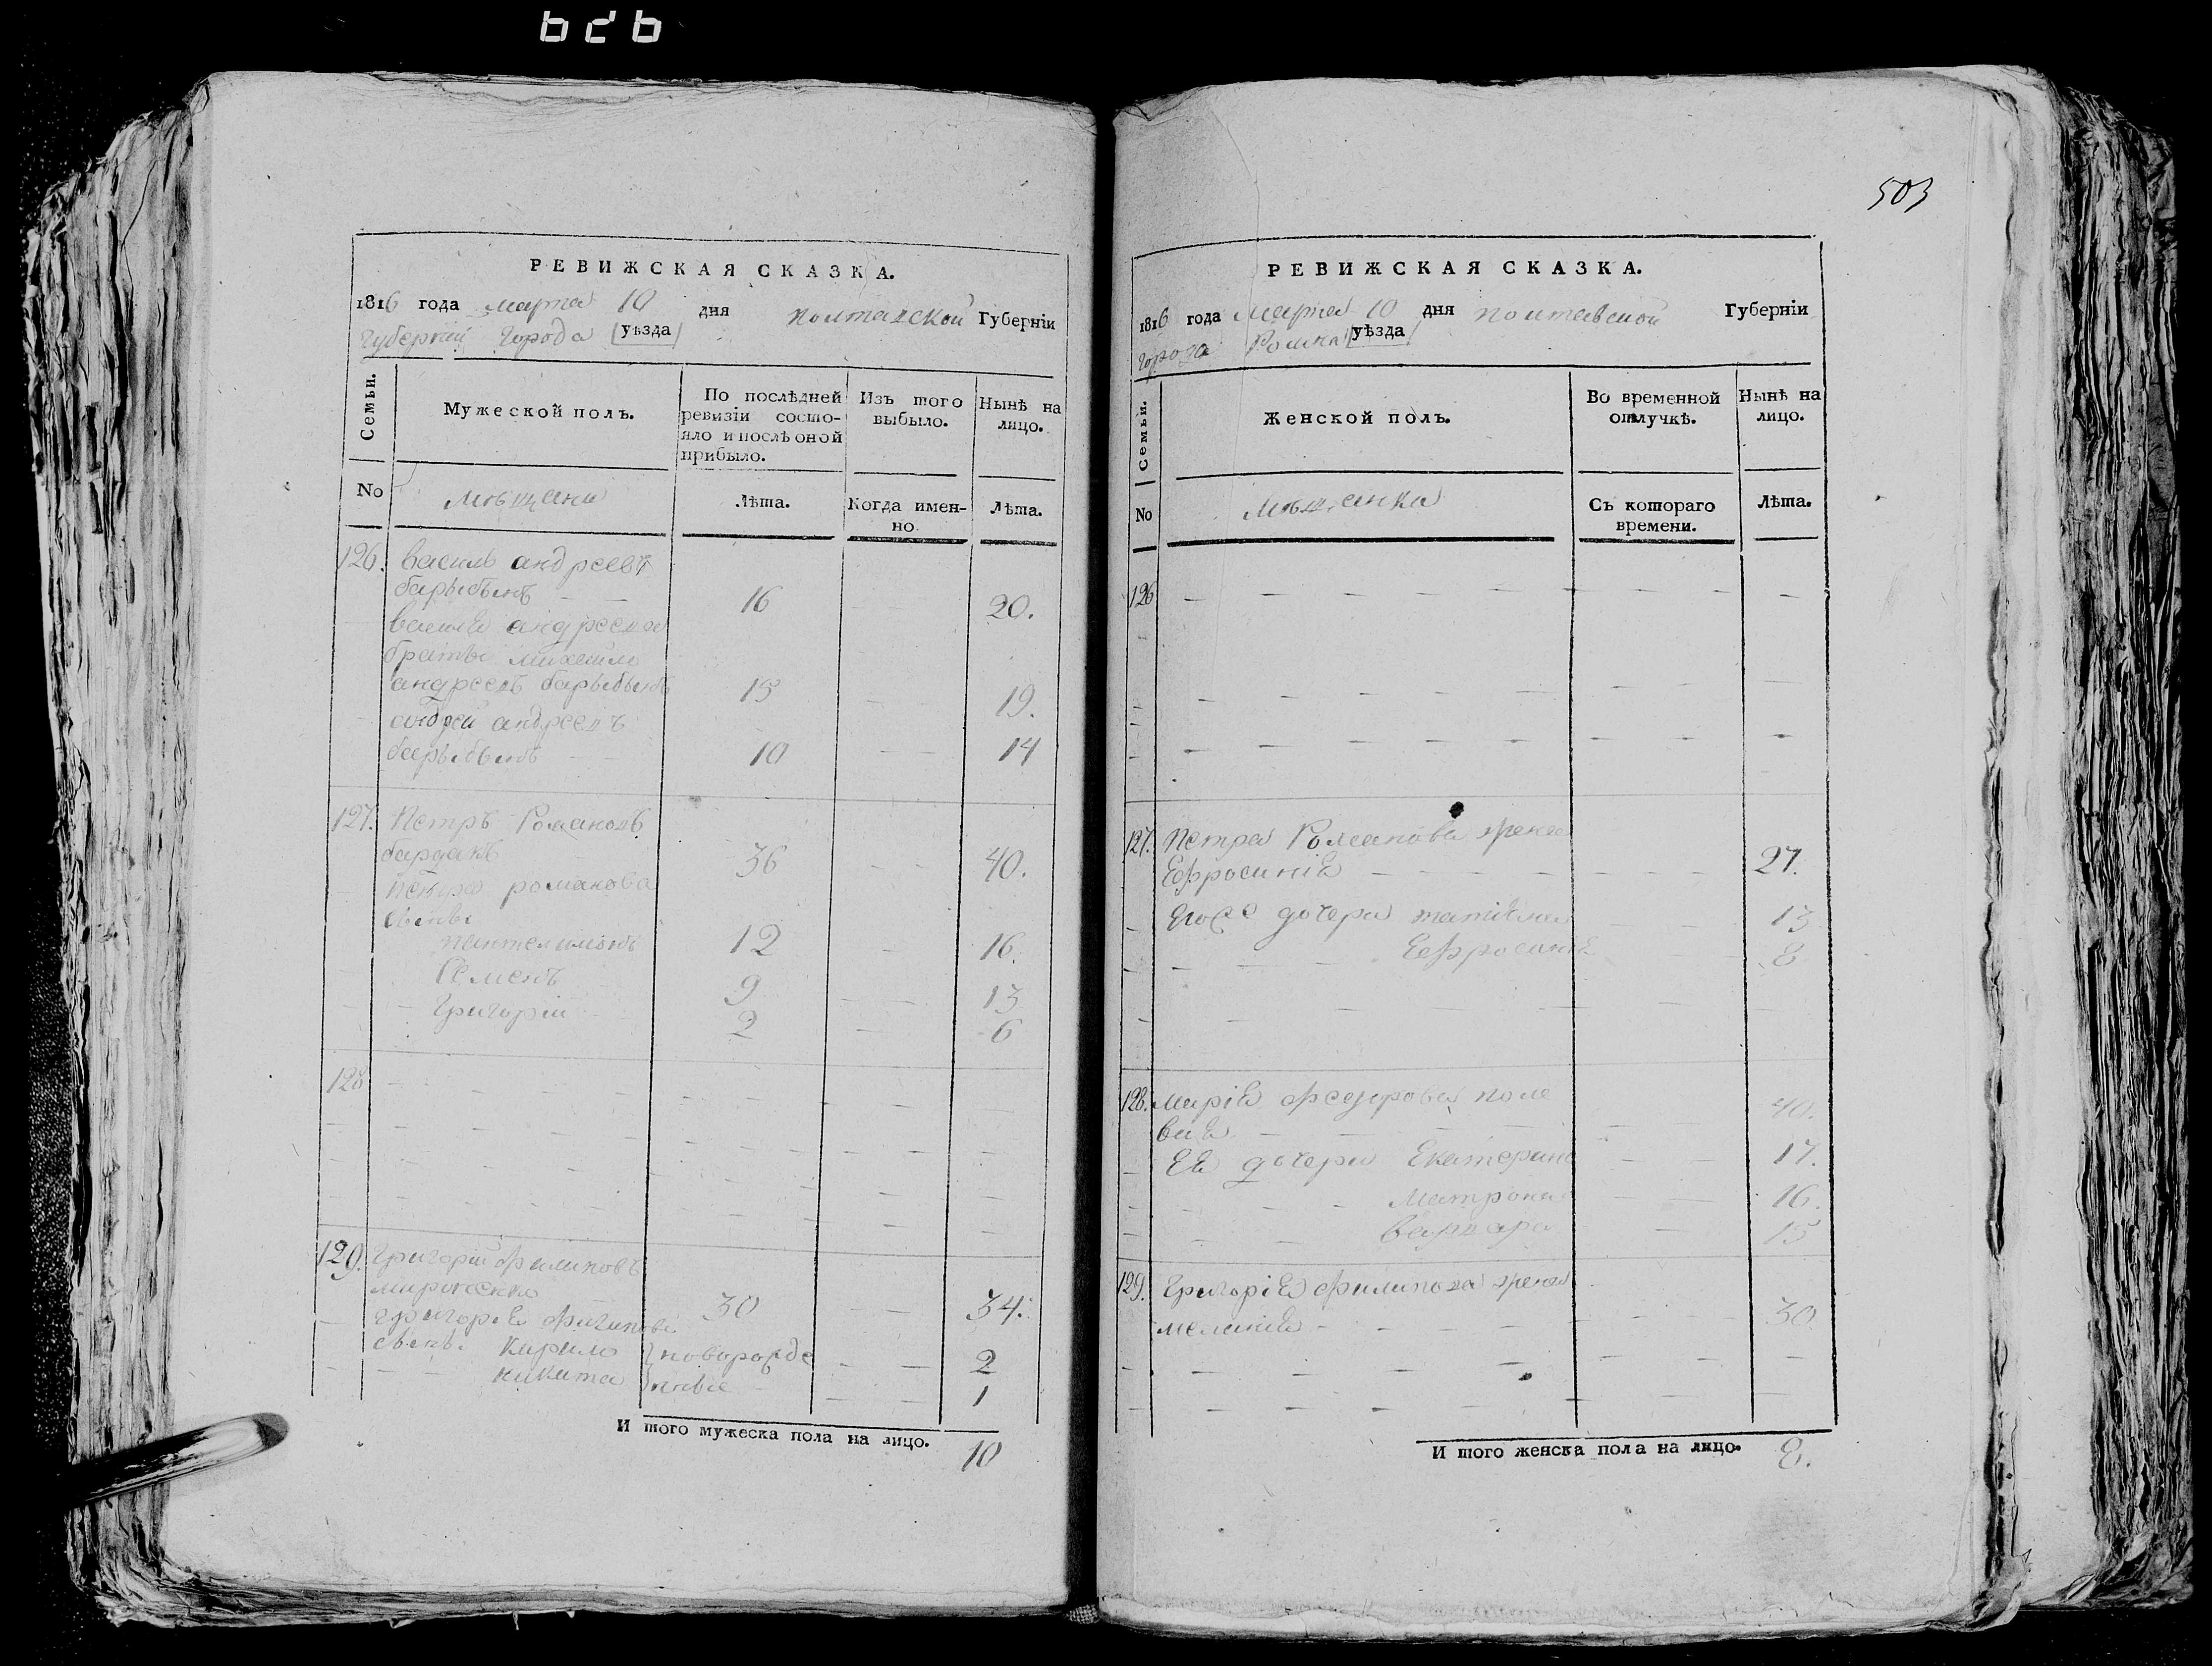 626
РЕВИЖСКАЯ СКАЗКА.
1816 года марта 10 дня полтавской Губернїи
губернїи города уѣзда
Семьи.
Мужеской полъ.
По послѣдней ревизїи состо-
яло и послѣ оной прибыло.
Изъ того выбыло.
Нынѣ на лицо.
No
мѣщане
Лѣта.
Когда имен-
но.
Лѣта.
126. василь андреевъ
барыбинъ — — 16 — — 20.
василя андреева
братья михайло
андреевъ барыбинъ 15 19.
андрей андреевъ
барыбинъ — — 10 — — 14
127. Петръ Романовъ
бардакъ 36 — — 40.
петра романова
сыны
пантелимонъ 12 — 16.
Семенъ 9 13
Григорїй 2 — 6
128
129. Григорїй филиповъ
мироненко 30 — 34.
григорїя филипова
сыны Кирило новорожде 2
никита нные 1
И того мужеска пола на лицо. 10
503
РЕВИЖСКАЯ СКАЗКА.
1816 года марта 10 дня полтавской Губернїи
города Ромна уѣзда
Семьи.
Женской полъ.
Во временной отлучкѣ.
Нынѣ на лицо.
No
мѣщанки
Съ котораго времени.
Лѣта.
126
127. Петра Романова жена
Ефросинїя 27.
дочери татїяна 13
Ефросинїя 8
128. марїя федорова поле
вая 40.
Ея дочери Екатерина 17.
Матрона 16.
Варвара 15
129. Григорїя филипова жена
меланїя 30
И того женска пола на лицо. 8.